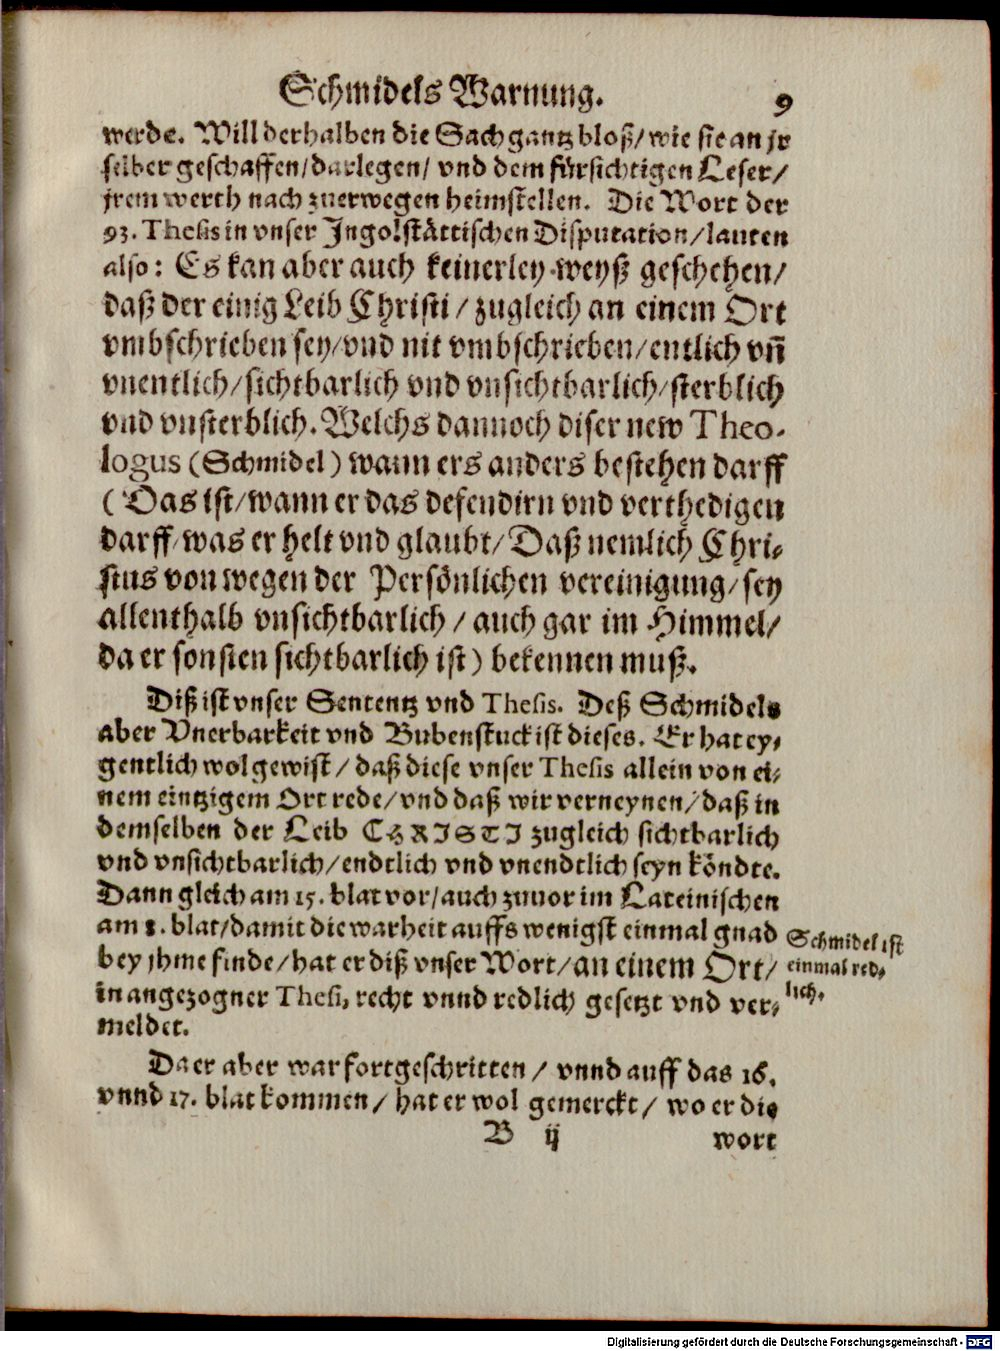 Schmidels Warnung. 9
werde. Will derhalben die Sach gantz bloß/ wie sie an jr
selber geschaffen/ darlegen/ vnd dem fürsichtigen Leser/
jrem werth nach zuerwegen heimstellen. Die Wort der
93. Thesis in vnser Ingolstättischen Disputation/ lauten
also: Es kan aber auch keinerley weyß geschehen/
daß der einig Leib Christi / zugleich an einem Ort
vmbschrieben sey/ vnd nit vmbschrieben/ entlich vñ
vnentlich/ sichtbarlich vnd vnsichtbarlich/ sterblich
vnd vnsterblich. Welchs dannoch diser new Theo-
logus (Schmidel) wann ers anders bestehen darff
(Das ist/ wann er das defendirn vnd verthedigen
darff/ was er helt vnd glaubt/ Daß nemlich Chri-
stus von wegen der Persönlichen vereinigung/ sey
allenthalb vnsichtbarlich / auch gar im Himmel/
da er sonsten sichtbarlich ist) bekennen muß.
Diß ist vnser Sententz vnd Thesis. Deß Schmidels
aber Vnerbarkeit vnd Bubenstuck ist dieses. Er hat ey-
gentlich wol gewist / daß diese vnser Thesis allein von ei-
nem eintzigem Ort rede/ vnd daß wir verneynen/ daß in
demselben der Leib CHRISTI zugleich sichtbarlich
vnd vnsichtbarlich/ endtlich vnd vnendtlich seyn köndte.
Dann gleich am 15. blat vor/ auch zuuor im Lateinischen
am 8. blat/ damit die warheit auffs wenigst einmal gnad
bey jhme finde/ hat er diß vnser Wort/ an einem Ort/
in angezogner Thesi, recht vnnd redlich gesetzt vnd ver-
meldet.
Schmidel ist
einmal red-
lich.
Da er aber war fortgeschritten / vnnd auff das 16.
vnnd 17. blat kommen/ hat er wol gemerckt/ wo er die
B ij wort
Digitalisierung gefördert durch die Deutsche Forschungsgemeinschaft - DFG